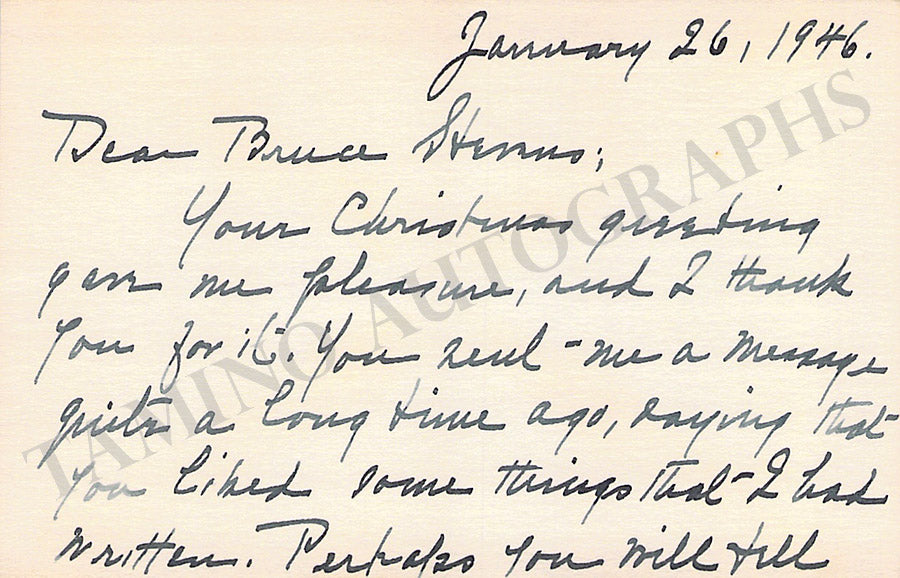 January 26, 1946.
Dear Bruce Stevens;
Your Christmas greeting
gave me pleasure, and I thank
you for it. You sent me a message
quite a long time ago, saying that
you liked some things that I had
written. Perhaps you will tell
TAMINO AUTOGRAPHS